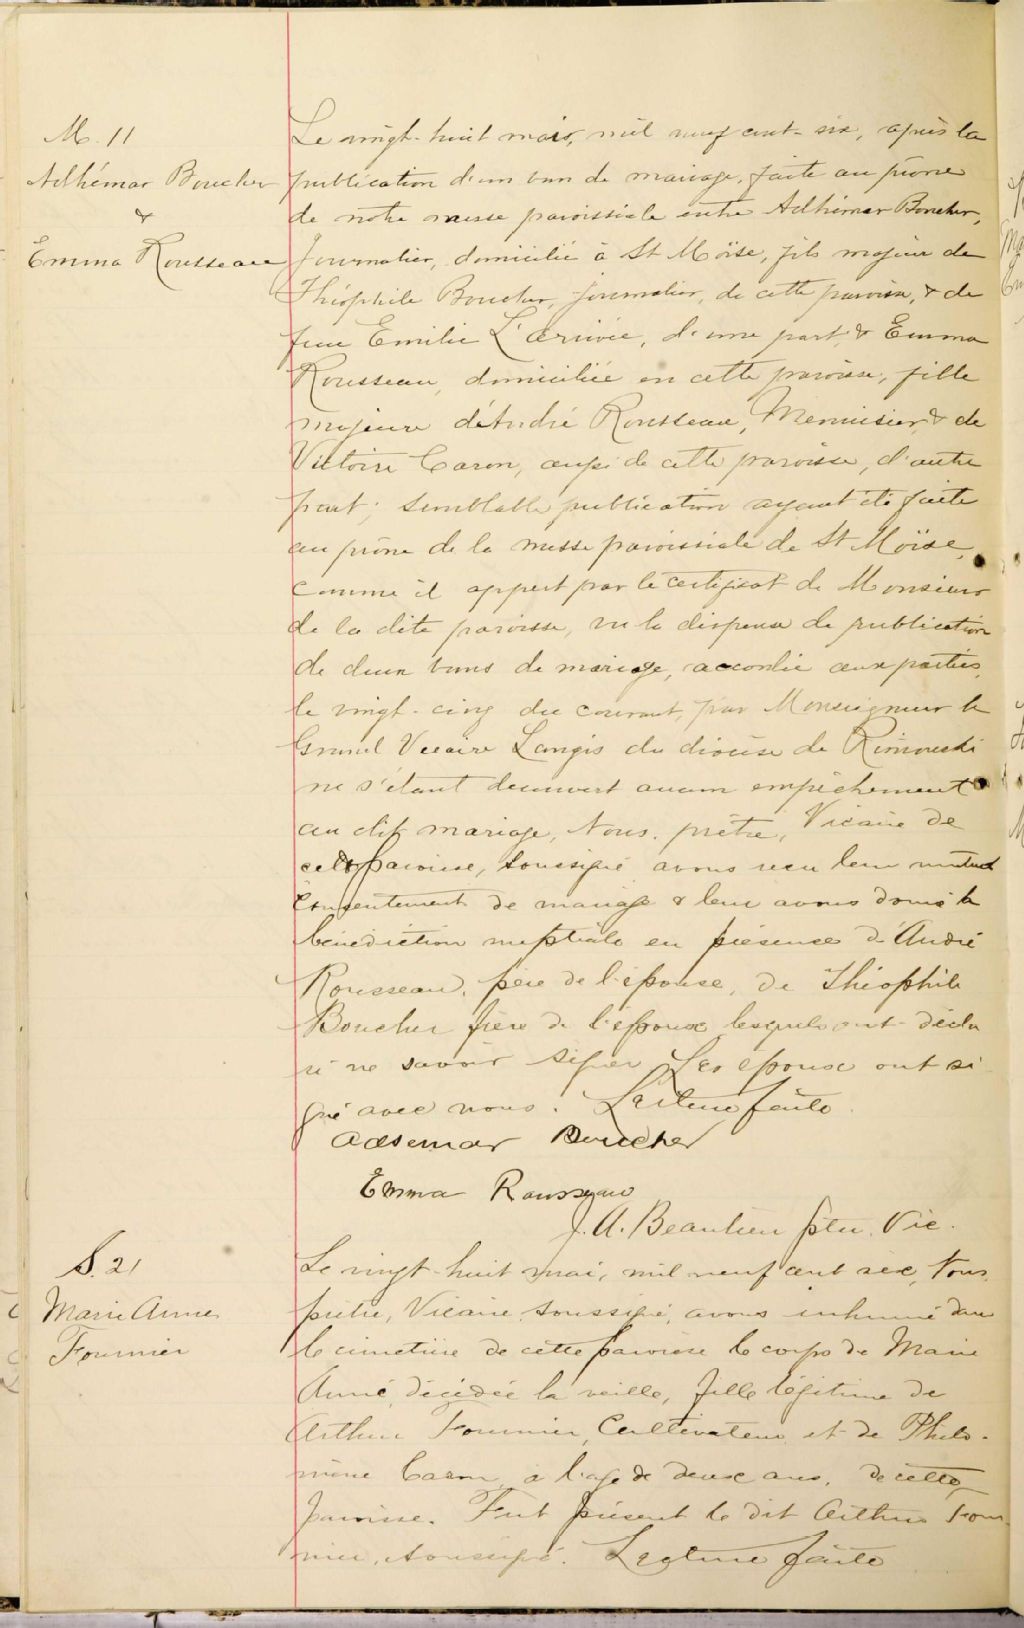 M. 11
Adhémar Boucher
&
Emma Rousseau
Le vingt-huit mai, mil neuf cent six, après la
publication d'un ban de mariage, faite au prône
de notre messe paroissiale entre Adhémar Boucher,
Journalier, domicilié à St Moïse, fils majeur de
Théophile Boucher, journalier, de cette paroisse, & de
feue Emilie L'arrivée, d'une part, & Emma
Rousseau, domiciliée en cette paroisse, fille
majeure d'André Rousseau, Menuisier & de
Victoire Caron, aussi de cette paroisse, d'autre
part; semblable publication ayant été faite
au prône de la messe paroissiale de St Moïse,
comme il appert par le certificat de Monsieur
de la dite paroisse, vu la dispense de publication
de deux bans de mariage, accordée aux parties,
le vingt-cinq du courant, par Monseigneur le
Grand Vicaire Langis du diocèse de Rimouski
ne s'étant découvert aucun empêchement
au dit mariage, Nous, prêtre, Vicaire de
cette paroisse, soussigné avons reçu leur mutuel
consentement de mariage & leur avons donné la
bénédiction nuptiale en présence d'André
Rousseau, père de l'épouse, de Théophile
Boucher frère de l'époux lesquels ont décla
ré ne savoir signer. Les époux ont si
gné avec nous. Lecture faite.
Adsemar Boucher
Emma Rousseau
J. A. Beaulieu ptre. Vic.
S. 21
Marie Anne
Fournier
Le vingt-huit mai, mil neuf cent six, Nous,
prêtre, Vicaire soussigné, avons inhumé dans
le cimetière de cette paroisse le corps de Marie
Anne, décédée la veille, fille légitime de
Arthur Fournier, Cultivateur et de Philo-
mène Caron, à l'age de deux ans, de cette
paroisse. Fut présent le dit Arthur Four
nier, soussigné. Lecture faite